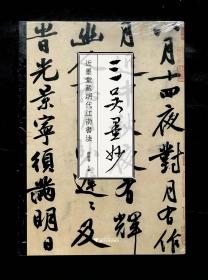 三吴墨妙
近墨堂藏明代江南书法
八月十四夜對月有作
有輝
及
光景寧須滿明日